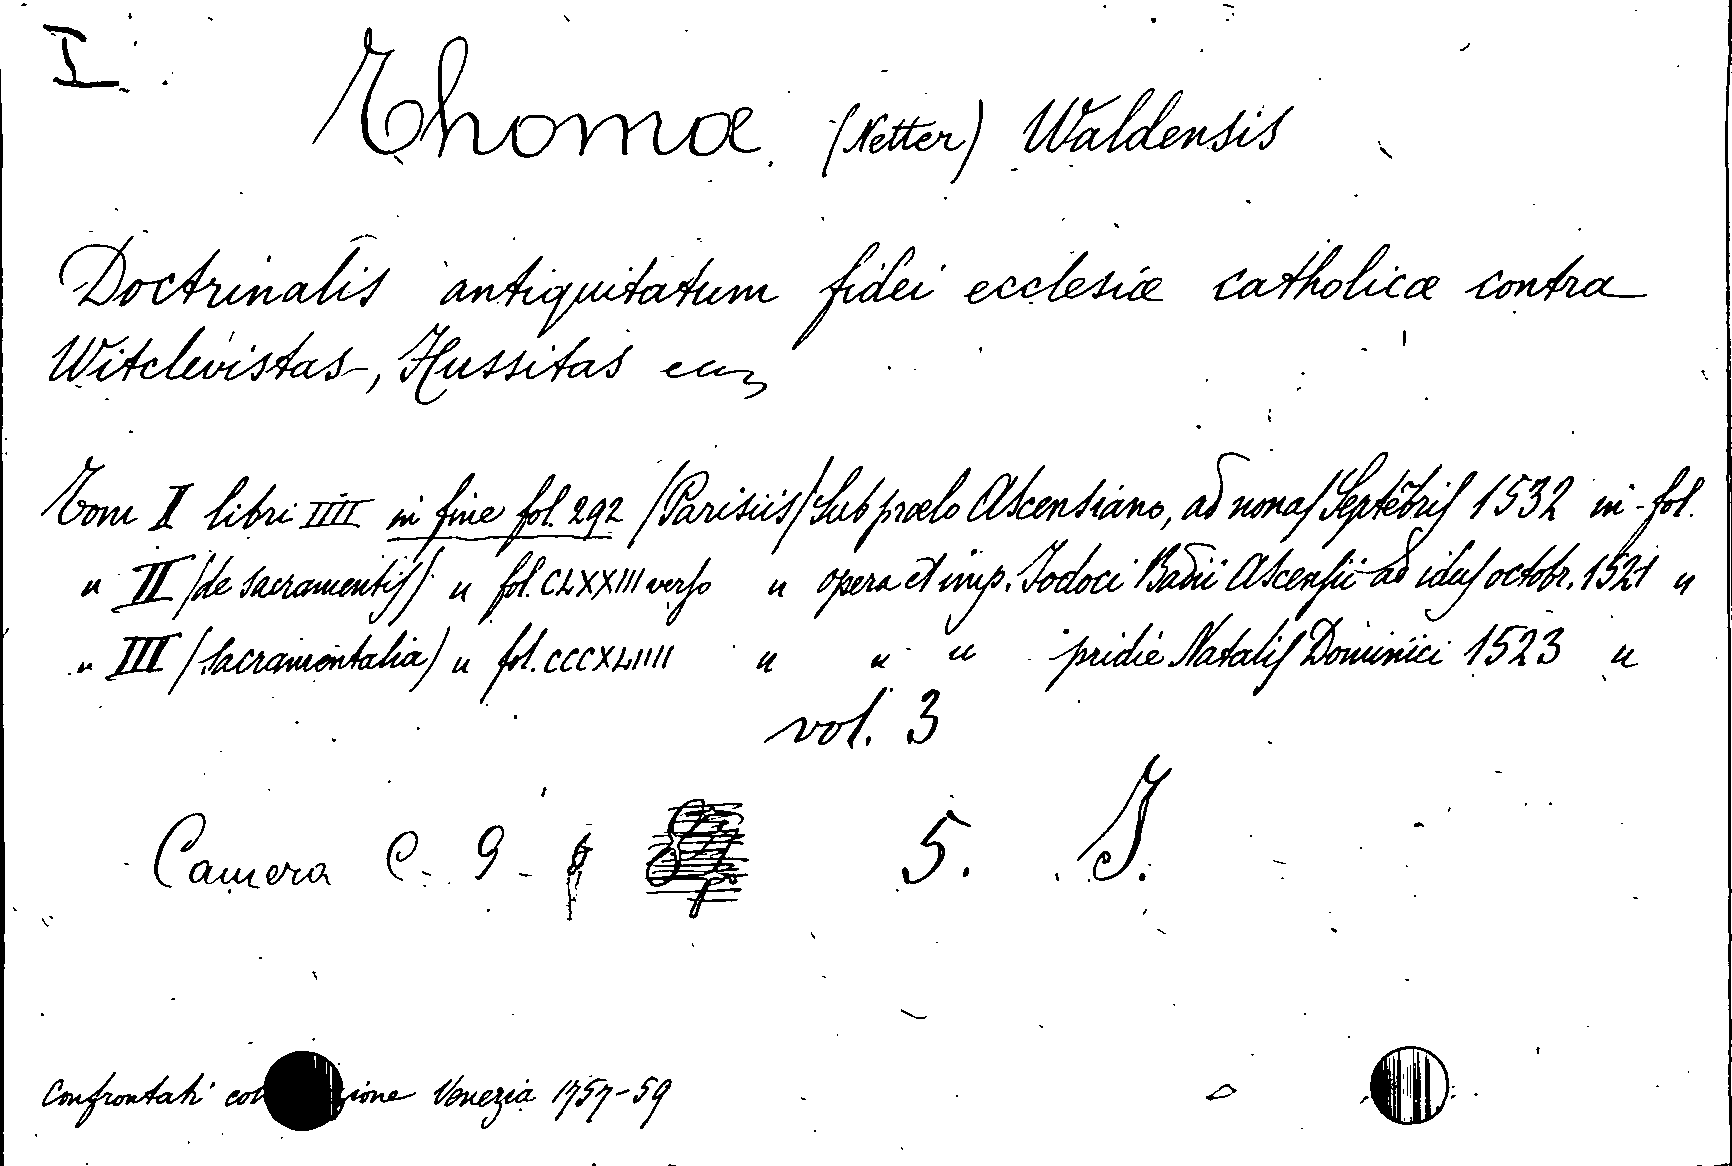 I.
Thomæ (Netter) Waldensis
Doctrinalis antiquitatum fidei ecclesiæ catholicæ contra
Witclevistas, Hussitas
Tom I libri IIII in fine fol. 292 (Parisiis) Sub prælo Ascensiano, ad nonas Septēbris 1532 in-fol.
" II (de sacramentis) " fol. CLXXIII verso " opera et imp. Jodoci Badii Ascensii ad idus octobr. 1521 "
" III (sacramentalia) " fol. CCCXLIIII " " " pridie Natalis Dominici 1523 "
vol. 3
Camera C. 9 - 5. I.
Confrontati Venezia 1757-59